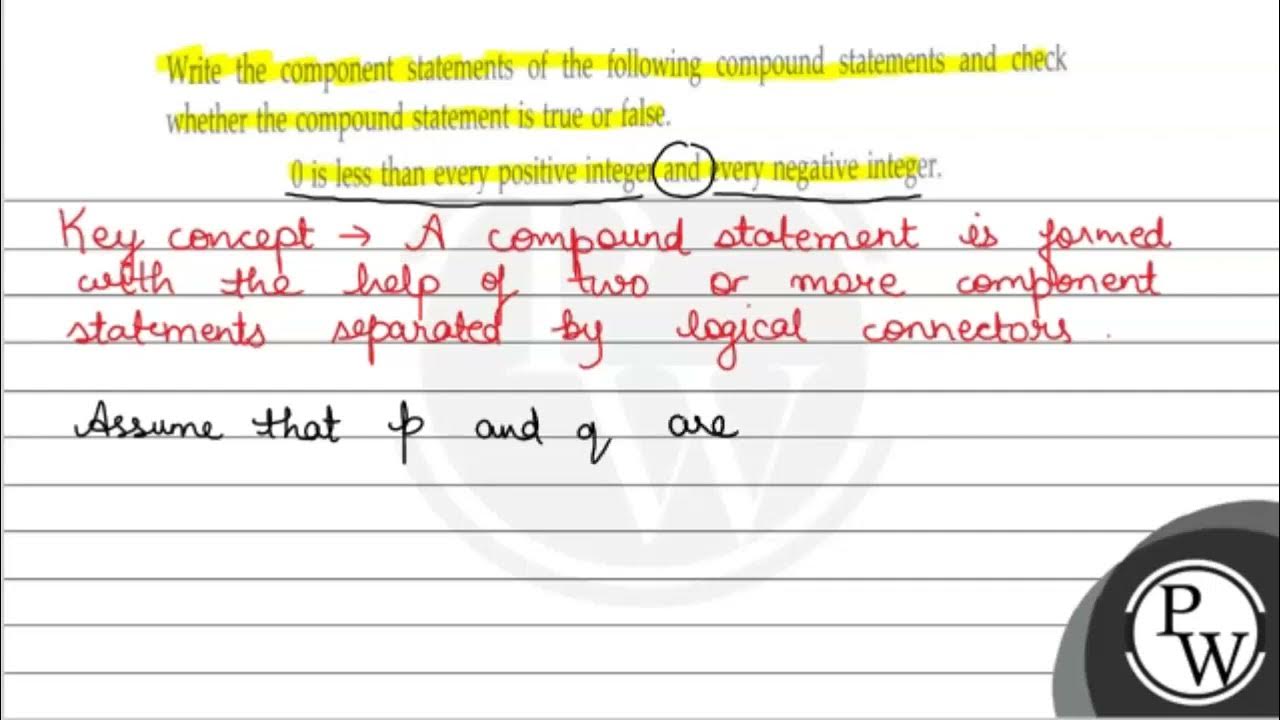 Write the component statements of the following compound statements and check
whether the compound statement is true or false.
0 is less than every positive integer and every negative integer.
Key concept → A compound statement is formed
with the help of two or more component
statements separated by logical connectors.
Assume that p and q are
PW
PW